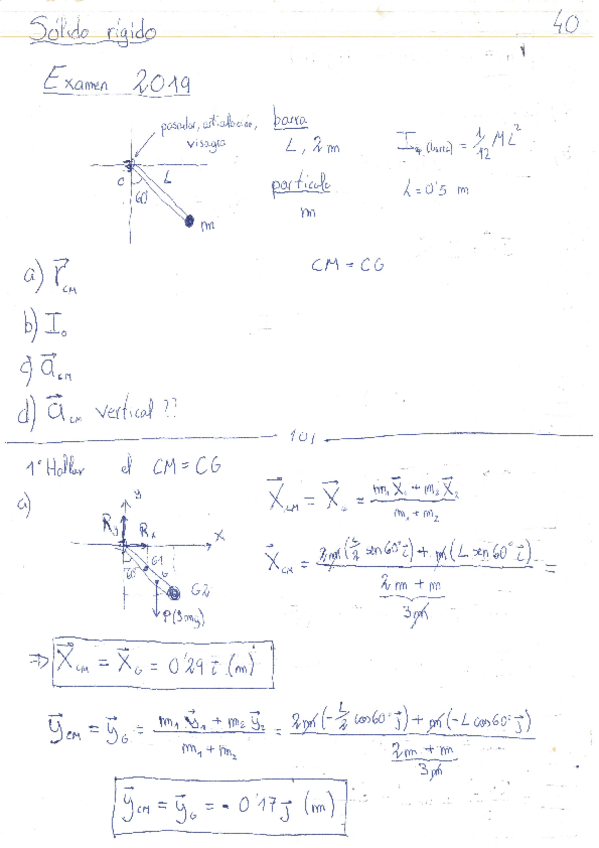 Sólido rígido
40
Examen 2019
pasador, articulación,
visagra
barra
L, 2m
I = 1/12 ML²
partícula
m
L = 0'5 m
O
L
60
m
CM = CG
a) r⃗ CM
b) I₀
c) a⃗ CM
d) a⃗ CM vertical??
1º Hallar el CM = CG
a)
y
Ry
Rx
x
60
G1
G
G2
P(3mg)
X⃗CM = X⃗G = (m₁X⃗₁ + m₂X⃗₂)/(m₁ + m₂)
X⃗CM = (2m(L/2 sen60° i⃗) + m(L sen60° i⃗))/(2m + m) =
3m
⇒ X⃗CM = X⃗G = 0'29 i⃗ (m)
y⃗CM = y⃗G = (m₁y⃗₁ + m₂y⃗₂)/(m₁ + m₂) = (2m(-L/2 cos60° j⃗) + m(-L cos60° j⃗))/(2m + m)
3m
y⃗CM = y⃗G = - 0'17 j⃗ (m)